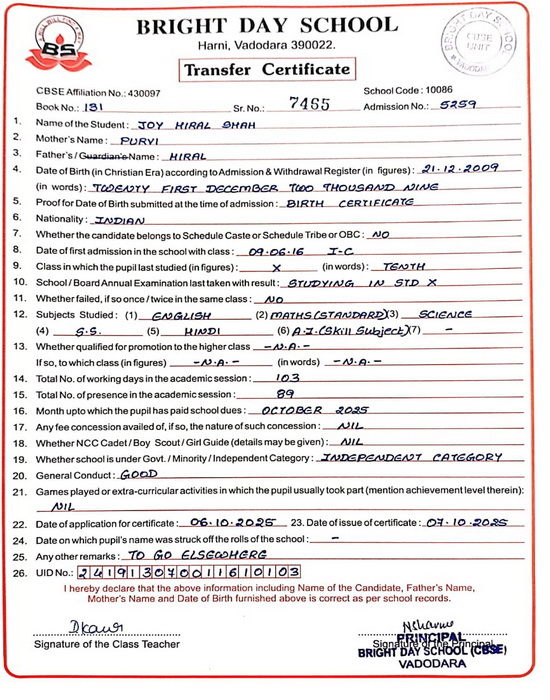 BRIGHT DAY SCHOOL
Harni, Vadodara 390022.
Transfer Certificate
BS
BRIGHT DAY SCHOOL
CBSE
UNIT
VADODARA
CBSE Affiliation No.: 430097 School Code : 10086
Book No.: 131 Sr. No.: 7465 Admission No.: 5259
1. Name of the Student : JOY HIRAL SHAH
2. Mother's Name : PURVI
3. Father's / Guardian's Name : HIRAL
4. Date of Birth (in Christian Era) according to Admission & Withdrawal Register (in figures) : 21.12.2009
(in words) : TWENTY FIRST DECEMBER TWO THOUSAND NINE
5. Proof for Date of Birth submitted at the time of admission : BIRTH CERTIFICATE
6. Nationality : INDIAN
7. Whether the candidate belongs to Schedule Caste or Schedule Tribe or OBC : NO
8. Date of first admission in the school with class : 09.06.16 I-C
9. Class in which the pupil last studied (in figures) : X (in words) : TENTH
10. School / Board Annual Examination last taken with result : STUDYING IN STD X
11. Whether failed, if so once / twice in the same class : NO
12. Subjects Studied : (1) ENGLISH (2) MATHS (STANDARD) (3) SCIENCE
(4) S.S. (5) HINDI (6) A.I. (Skill Subject) (7) -
13. Whether qualified for promotion to the higher class -N.A.-
If so, to which class (in figures) -N.A.- (in words) -N.A.-
14. Total No. of working days in the academic session : 103
15. Total No. of presence in the academic session : 89
16. Month upto which the pupil has paid school dues : OCTOBER 2025
17. Any fee concession availed of, if so, the nature of such concession : NIL
18. Whether NCC Cadet / Boy Scout / Girl Guide (details may be given) : NIL
19. Whether school is under Govt. / Minority / Independent Category : INDEPENDENT CATEGORY
20. General Conduct : GOOD
21. Games played or extra-curricular activities in which the pupil usually took part (mention achievement level therein) :
NIL
22. Date of application for certificate : 06.10.2025 23. Date of issue of certificate : 07.10.2025
24. Date on which pupil's name was struck off the rolls of the school : -
25. Any other remarks : TO GO ELSEWHERE
26. UID No.: 241913070011610103
I hereby declare that the above information including Name of the Candidate, Father's Name,
Mother's Name and Date of Birth furnished above is correct as per school records.
Signature of the Class Teacher Signature of the Principal
PRINCIPAL
BRIGHT DAY SCHOOL (CBSE)
VADODARA